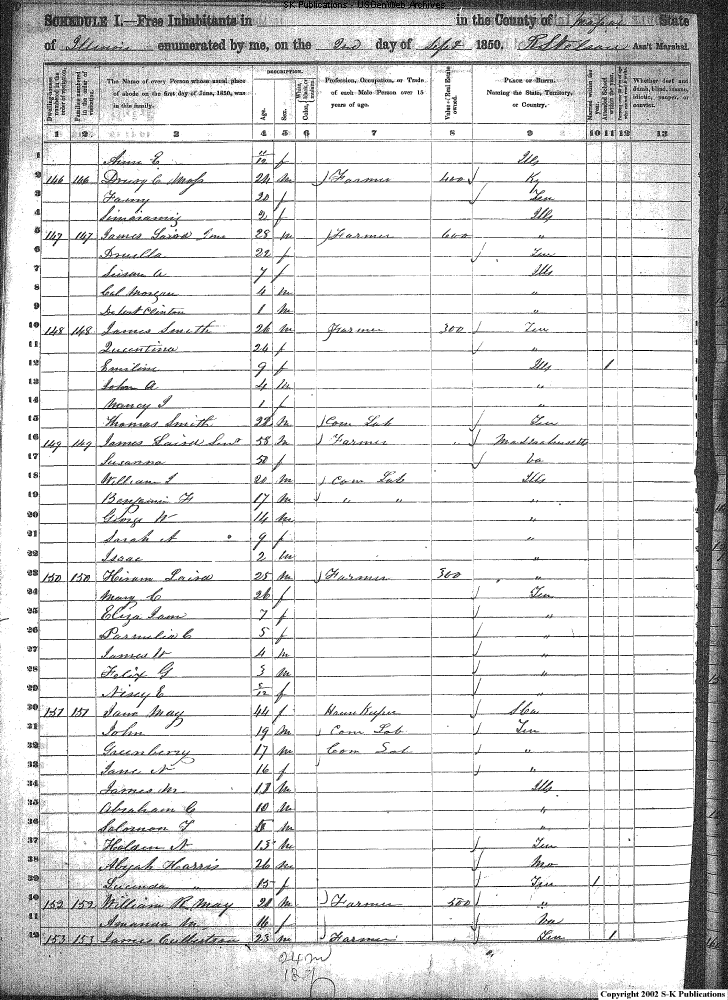 S-K Publications - USGenWeb Archives
SCHEDULE I.—Free Inhabitants in in the County of State
of Illinois enumerated by me, on the 2nd day of Sept 1850. Ass't Marshal.
Dwelling-houses numbered in the order of visitation.
Families numbered in the order of visitation.
The Name of every Person whose usual place of abode on the first day of June, 1850, was in this family.
DESCRIPTION.
Age.
Sex.
Color, White, black, or mulatto.
Profession, Occupation, or Trade of each Male Person over 15 years of age.
Value of Real Estate owned.
PLACE OF BIRTH. Naming the State, Territory, or Country.
Married within the year.
Attended School within the year.
Whether deaf and dumb, blind, insane, idiotic, pauper, or convict.
1 2 3 4 5 6 7 8 9 10 11 12 13
1 Ann E /12 f Ills
2 146 146 Drury C Moss 24 m Farmer 400 Ky
3 Fanny 20 f Ten
4 2 f Ills
5 147 147 James Laird Jun 28 m Farmer 600 "
6 22 f Ten
7 Susan A 7 f Ills
8 Cal Morgan 4 m "
9 Dewitt Clinton 1 m "
10 148 148 James Smith 26 m Farmer 300 Ten
11 Queentina 24 f "
12 Emiline 9 f Ills 1
13 John A 4 m "
14 Nancy J 1 f "
15 Thomas Smith 22 m Com Lab Ten
16 149 149 James Laird Senr 58 m Farmer " Massachusetts
17 Susanna 50 f Va
18 William 20 m Com Lab Ills
19 Benjamin F 17 m " " "
20 George W 14 m "
21 Sarah A 9 f "
22 Isaac 2 m "
23 150 150 Hiram Laird 25 m Farmer 300 "
24 Mary C 26 f Ten
25 Eliza Jane 7 f "
26 Parmelia C 5 f "
27 James W 4 m "
28 Felix G 3 m "
29 Nisey E /12 f "
30 151 151 Jane May 44 f House Keeper
31 John 19 m Com Lab Ten
32 Greenberry 17 m Com Lab "
33 Jane N 16 f "
34 James M m Ills
35 Abraham C 10 m "
36 Solomon T 8 m "
37 Holden N 13 m Ten
38 Abijah Harris 26 m Mo
39 Lucinda " 15 f Ten 1
40 152 152 William R May 20 m Farmer 500 "
41 Amanda M 16 f Va
42 153 153 James Culbertson 23 m Farmer Ten 1
24 m
18 f
Copyright 2002 S-K Publications